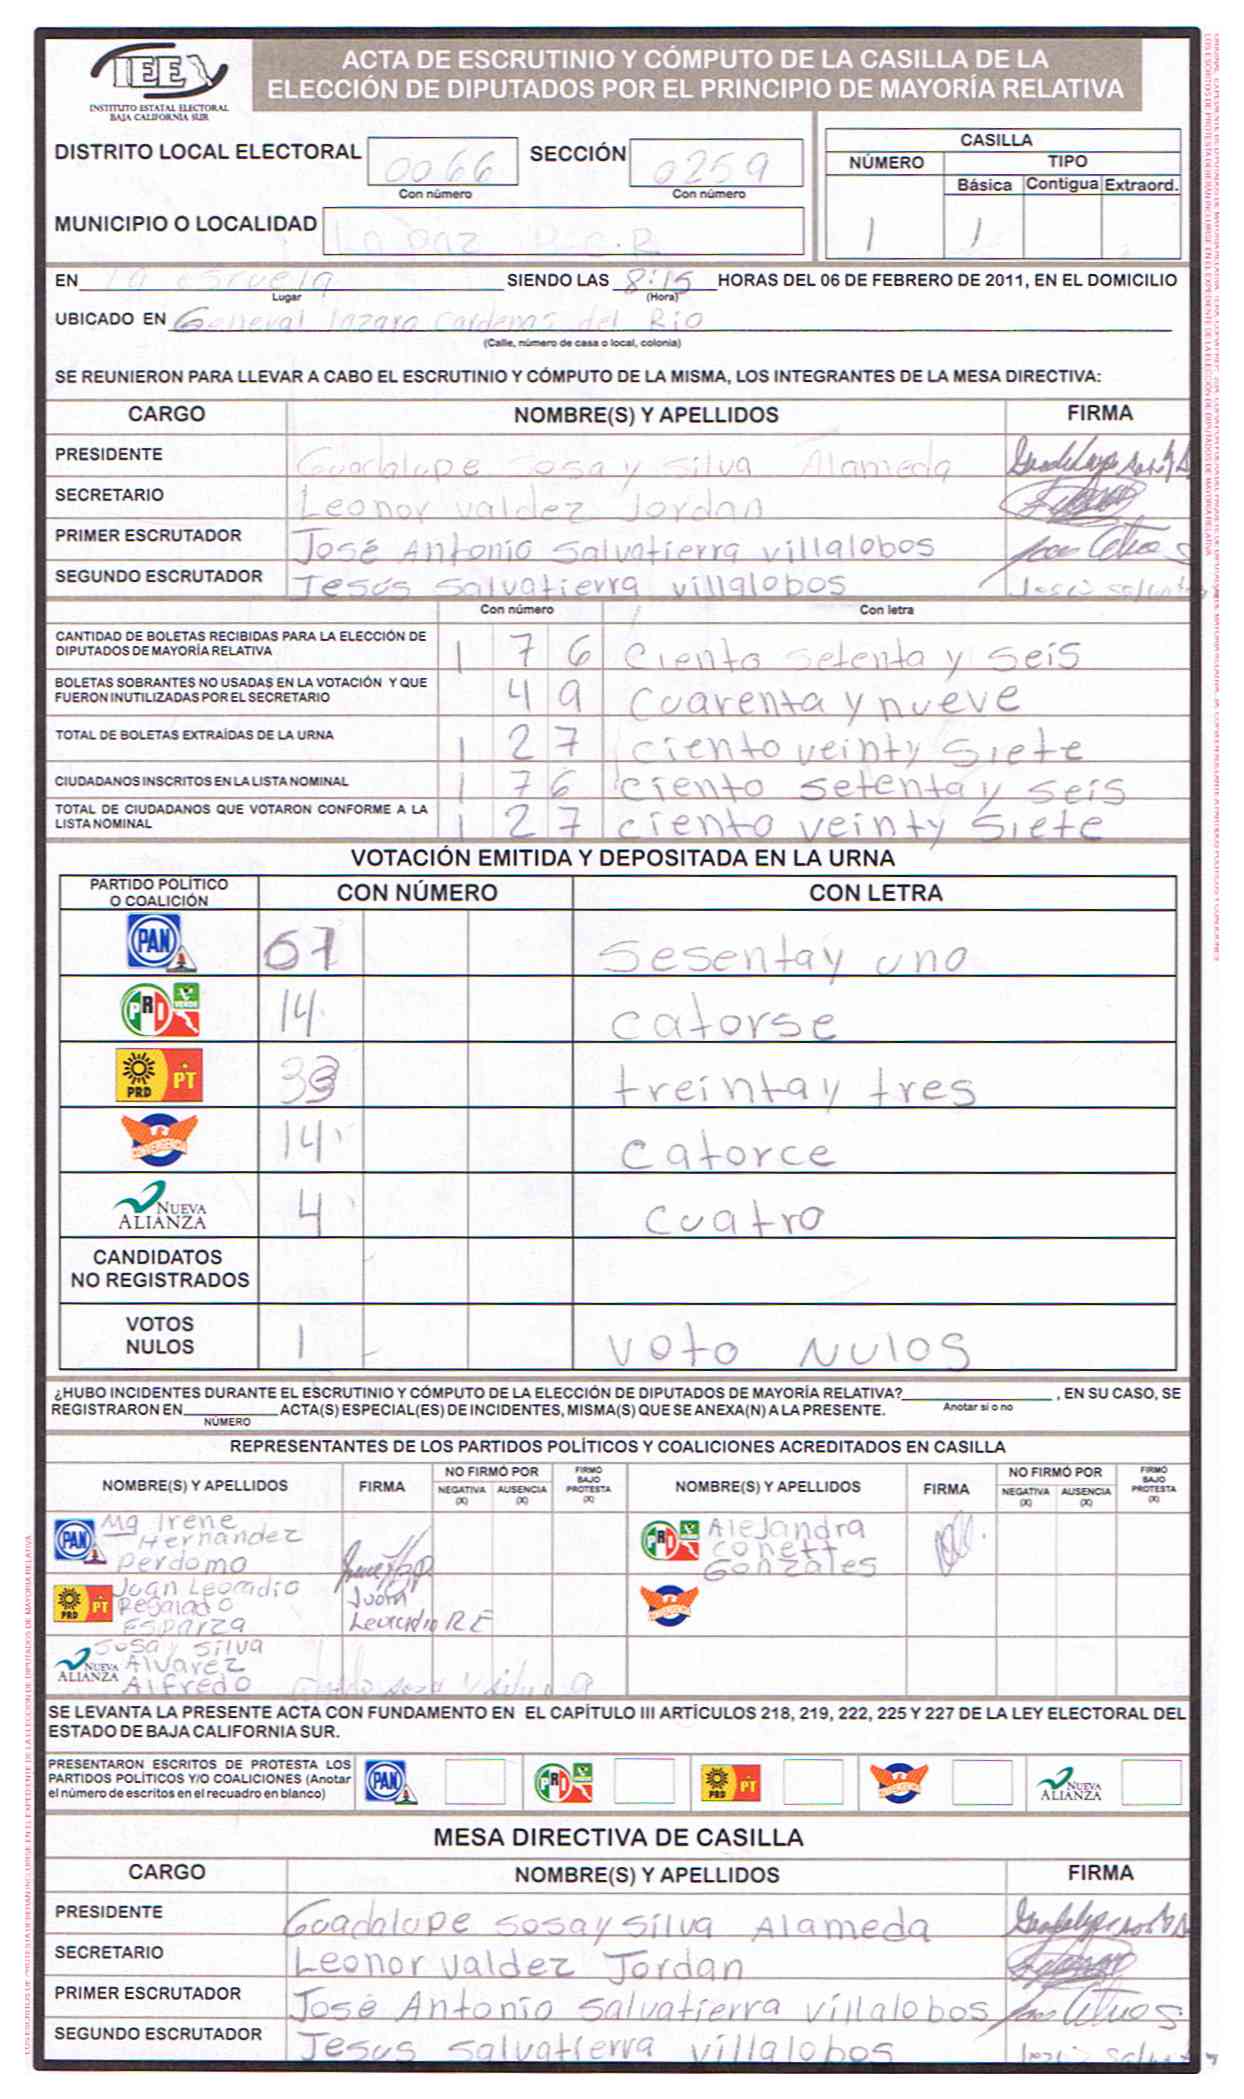 IEE
INSTITUTO ESTATAL ELECTORAL
BAJA CALIFORNIA SUR
ACTA DE ESCRUTINIO Y CÓMPUTO DE LA CASILLA DE LA
ELECCIÓN DE DIPUTADOS POR EL PRINCIPIO DE MAYORÍA RELATIVA
DISTRITO LOCAL ELECTORAL 0066 SECCIÓN 0259
Con número Con número
CASILLA
NÚMERO TIPO
Básica Contigua Extraord.
1 1
MUNICIPIO O LOCALIDAD La paz
EN La esruela SIENDO LAS 8:15 HORAS DEL 06 DE FEBRERO DE 2011, EN EL DOMICILIO
Lugar (Hora)
UBICADO EN General lazaro Cardenas del Rio
(Calle, número de casa o local, colonia)
SE REUNIERON PARA LLEVAR A CABO EL ESCRUTINIO Y CÓMPUTO DE LA MISMA, LOS INTEGRANTES DE LA MESA DIRECTIVA:
CARGO NOMBRE(S) Y APELLIDOS FIRMA
PRESIDENTE Guadalupe Sosa y Silva Alameda
SECRETARIO Leonor Valdez Jordan
PRIMER ESCRUTADOR José Antonio Salvatierra villalobos
SEGUNDO ESCRUTADOR Jesús Salvatierra villalobos
Con número Con letra
CANTIDAD DE BOLETAS RECIBIDAS PARA LA ELECCIÓN DE
DIPUTADOS DE MAYORÍA RELATIVA 1 7 6 Ciento setenta y seis
BOLETAS SOBRANTES NO USADAS EN LA VOTACIÓN Y QUE
FUERON INUTILIZADAS POR EL SECRETARIO 4 9 Cuarenta y nueve
TOTAL DE BOLETAS EXTRAÍDAS DE LA URNA 1 2 7 ciento veinty Siete
CIUDADANOS INSCRITOS EN LA LISTA NOMINAL 1 7 6 ciento setenta y seis
TOTAL DE CIUDADANOS QUE VOTARON CONFORME A LA
LISTA NOMINAL 1 2 7 ciento veinty Siete
VOTACIÓN EMITIDA Y DEPOSITADA EN LA URNA
PARTIDO POLÍTICO
O COALICIÓN CON NÚMERO CON LETRA
PAN 61 Sesentay uno
PRI VERDE 14 catorse
PRD PT 33 treintay tres
CONVERGENCIA 14 catorce
NUEVA ALIANZA 4 cuatro
CANDIDATOS
NO REGISTRADOS
VOTOS
NULOS 1 voto NULOS
¿HUBO INCIDENTES DURANTE EL ESCRUTINIO Y CÓMPUTO DE LA ELECCIÓN DE DIPUTADOS DE MAYORÍA RELATIVA? , EN SU CASO, SE
Anotar si o no
REGISTRARON EN ACTA(S) ESPECIAL(ES) DE INCIDENTES, MISMA(S) QUE SE ANEXA(N) A LA PRESENTE.
NÚMERO
REPRESENTANTES DE LOS PARTIDOS POLÍTICOS Y COALICIONES ACREDITADOS EN CASILLA
NOMBRE(S) Y APELLIDOS FIRMA NO FIRMÓ POR NEGATIVA (X) AUSENCIA (X) FIRMÓ BAJO PROTESTA (X) NOMBRE(S) Y APELLIDOS FIRMA NO FIRMÓ POR NEGATIVA (X) AUSENCIA (X) FIRMÓ BAJO PROTESTA (X)
PAN Ma Irene
Hernandez
perdomo
PRI VERDE Alejandra
conett
Gonzales
PRD PT Juan Leocadio
Regalado
Esparza
Juan
Leocadio R E
CONVERGENCIA
NUEVA ALIANZA Sosa y Silva
Alvarez
Alfredo
SE LEVANTA LA PRESENTE ACTA CON FUNDAMENTO EN EL CAPÍTULO III ARTÍCULOS 218, 219, 222, 225 Y 227 DE LA LEY ELECTORAL DEL
ESTADO DE BAJA CALIFORNIA SUR.
PRESENTARON ESCRITOS DE PROTESTA LOS
PARTIDOS POLÍTICOS Y/O COALICIONES (Anotar
el número de escritos en el recuadro en blanco)
PAN PRI VERDE PRD PT CONVERGENCIA NUEVA ALIANZA
MESA DIRECTIVA DE CASILLA
CARGO NOMBRE(S) Y APELLIDOS FIRMA
PRESIDENTE Guadalupe Sosa y Silva Alameda
SECRETARIO Leonor Valdez Jordan
PRIMER ESCRUTADOR José Antonio Salvatierra villalobos
SEGUNDO ESCRUTADOR Jesus Salvatierra villalobos